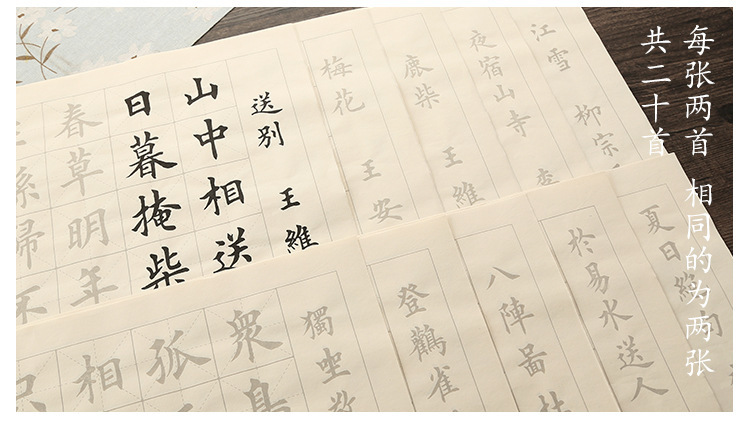 每张两首 相同的为两张
共二十首
江雪 柳宗
夜宿山寺
鹿柴 王維
梅花 王安
送别 王維
山中相送
日暮掩柴
春草明年
孫歸不
夏日絶
於易水送人
八陣圖
登鸛雀
獨坐敬
衆鳥
孤
相